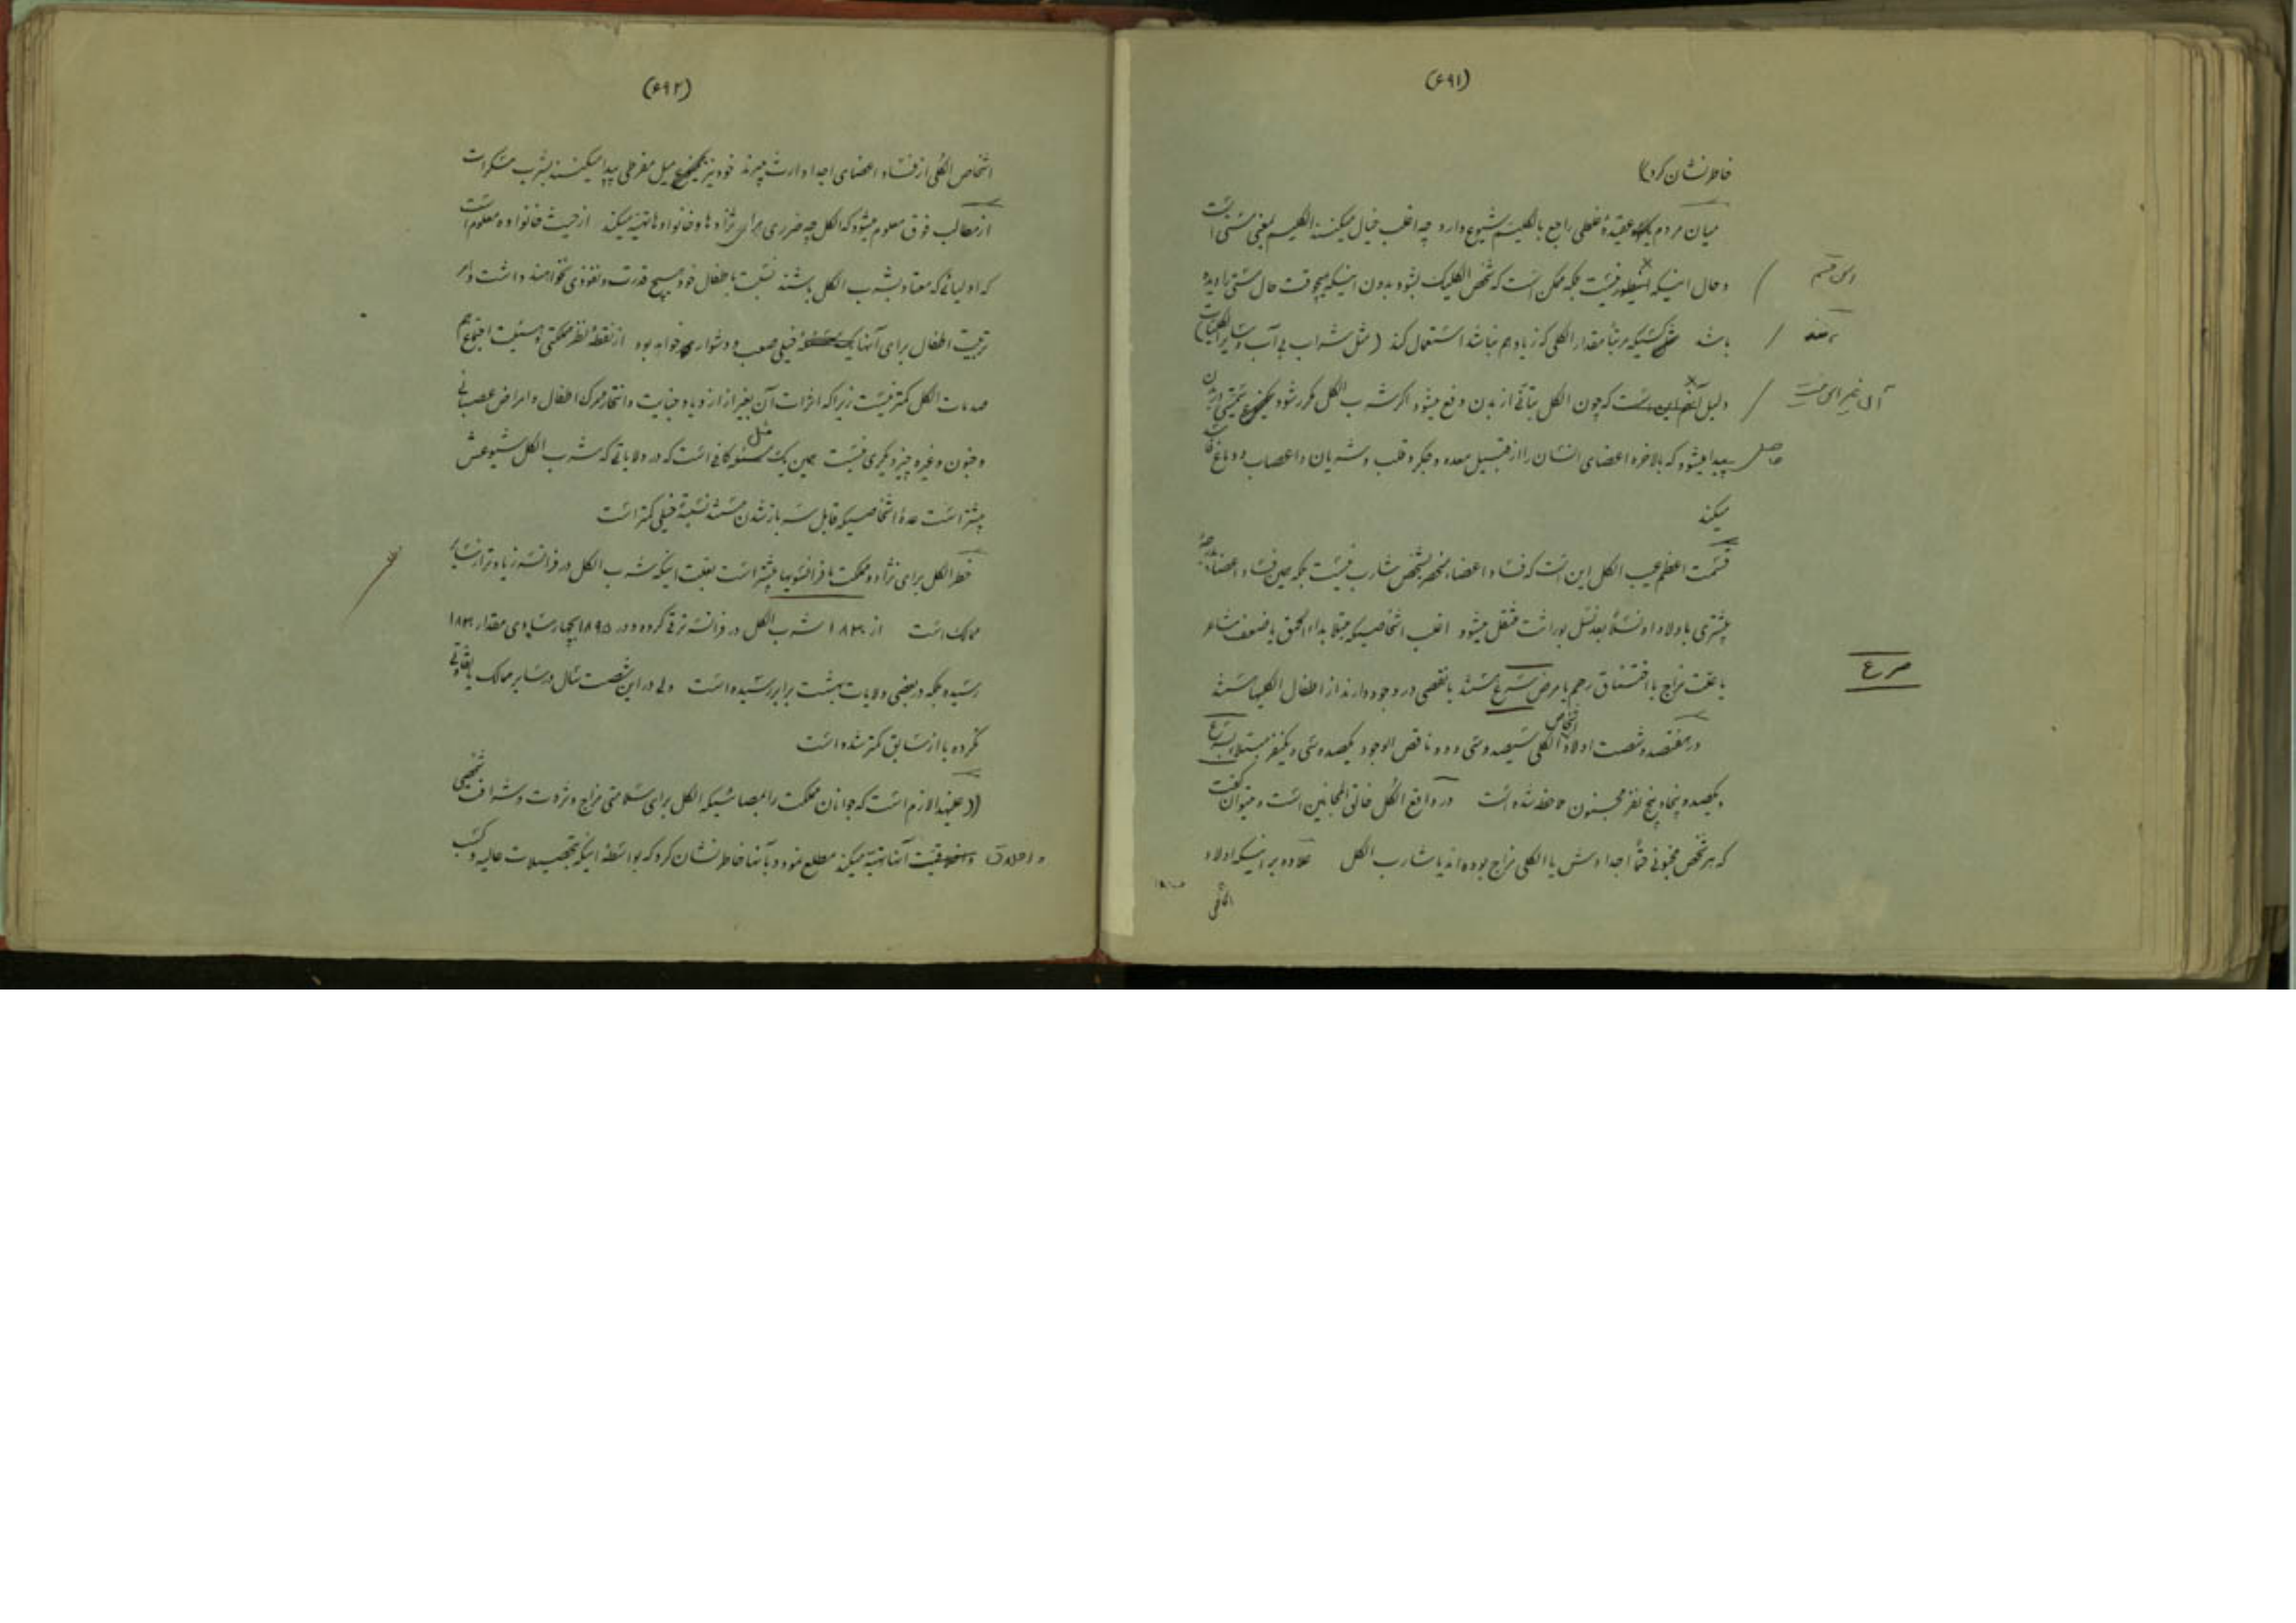 (۶۹۱)
خاطر نشان کرد))
میان مردم عقیدهٔ غلطی راجع بالکلیسم شیوع دارد چه اغلب خیال میکنند الکلیسم یعنی مستی است
و حال اینکه اینطور نیست بلکه ممکن است که شخص الکلیک بشود بدون اینکه هیچوقت حال مستی را دیده
باشد کسیکه مرتباً مقدار الکلی که زیاد هم نباشد استعمال کند (مثل شراب بی آب و سایر الکلیات)
دلیل این است که چون الکل بتأنی از بدن دفع میشود اگر شرب الکل مکرر شود
حاصل پیدا میشود که بالاخره اعضای انسان را از قبیل معده و جگر و قلب و شریان و اعصاب و دماغ
میکند
قسمت اعظم عیب الکل این است که فساد اعضاء منحصر بشخص شارب نیست بلکه همین فساد اعضاء بدرجهٔ
بیشتری باولاد او نسلاً بعد نسل بوراثت منتقل میشود اغلب اشخاصیکه مبتلا بداء الحمق یا ضعف مشاعر
یا علت مزاج یا اختناق رحم یا مرض سرع هستند یا نقصی در وجود دارند از اطفال الکلیها هستند
صرع
در هفتصد و شصت اولاد اشخاص الکلی سیصد و سی و دو ناقص الوجود یکصد و سی و یکنفر مبتلا بسرع
و یکصد و پنجاه و پنج نفر مجنون ملاحظه شده است در واقع الکل خالق المجانین است و میتوان گفت
که هر شخص مجنونی حتماً اجدادش یا الکلی مزاج بوده اند یا شارب الکل علاوه بر اینکه اولاد
(۶۹۲)
اشخاص الکلی از فساد اعضای اجداد ارث میبرند خود نیز میل مفرطی پیدا میکنند بشرب مسکرات
از مطالب فوق معلوم میشود که الکل چه ضرری برای نژادها و خانوادها تهیه میکند از حیث خانواده معلوم است
که اولیائی که معتاد بشرب الکل باشند نسبت باطفال خود هیچ قدرت و نفوذی نخواهند داشت و امر
تربیت اطفال برای آنها خیلی صعب و دشوار خواهد بود از نقطهٔ نظر مملکتی و هیئت اجتماع هم
صدمات الکل کمتر نیست زیرا که اثرات آن بغیر از ازدیاد جنایت و انتحار و مرگ اطفال و امراض عصبانی
و جنون و غیره چیز دیگری نیست همین یک مثل کافی است که در ولایاتی که شرب الکل شیوعش
بیشتر است عدهٔ اشخاصیکه قابل سرباز شدن هستند نسبةً خیلی کمتر است
خطر الکل برای نژاد و مملکت ما فرانسویها بیشتر است بعلت اینکه شرب الکل در فرانسه زیادتر از سایر
ممالک است از ۱۸۳۰ شرب الکل در فرانسه ترقی کرده و در ۱۸۹۵ بچهار مساوی مقدار ۱۸۳۰
رسیده بلکه در بعضی ولایات بهشت برابر رسیده است ولی در این شصت سال در سایر ممالک یا تفاوتی
نکرده یا از سابق کمتر شده است
((علیهذا لازم است که جوانان مملکت را بمصائبیکه الکل برای سلامتی مزاج و ثروت و شرافت شخصی
و اخلاق آنها تهیه میکند مطلع نمود و بآنها خاطر نشان کرد که بواسطهٔ اینکه تحصیلات عالیه و کسب